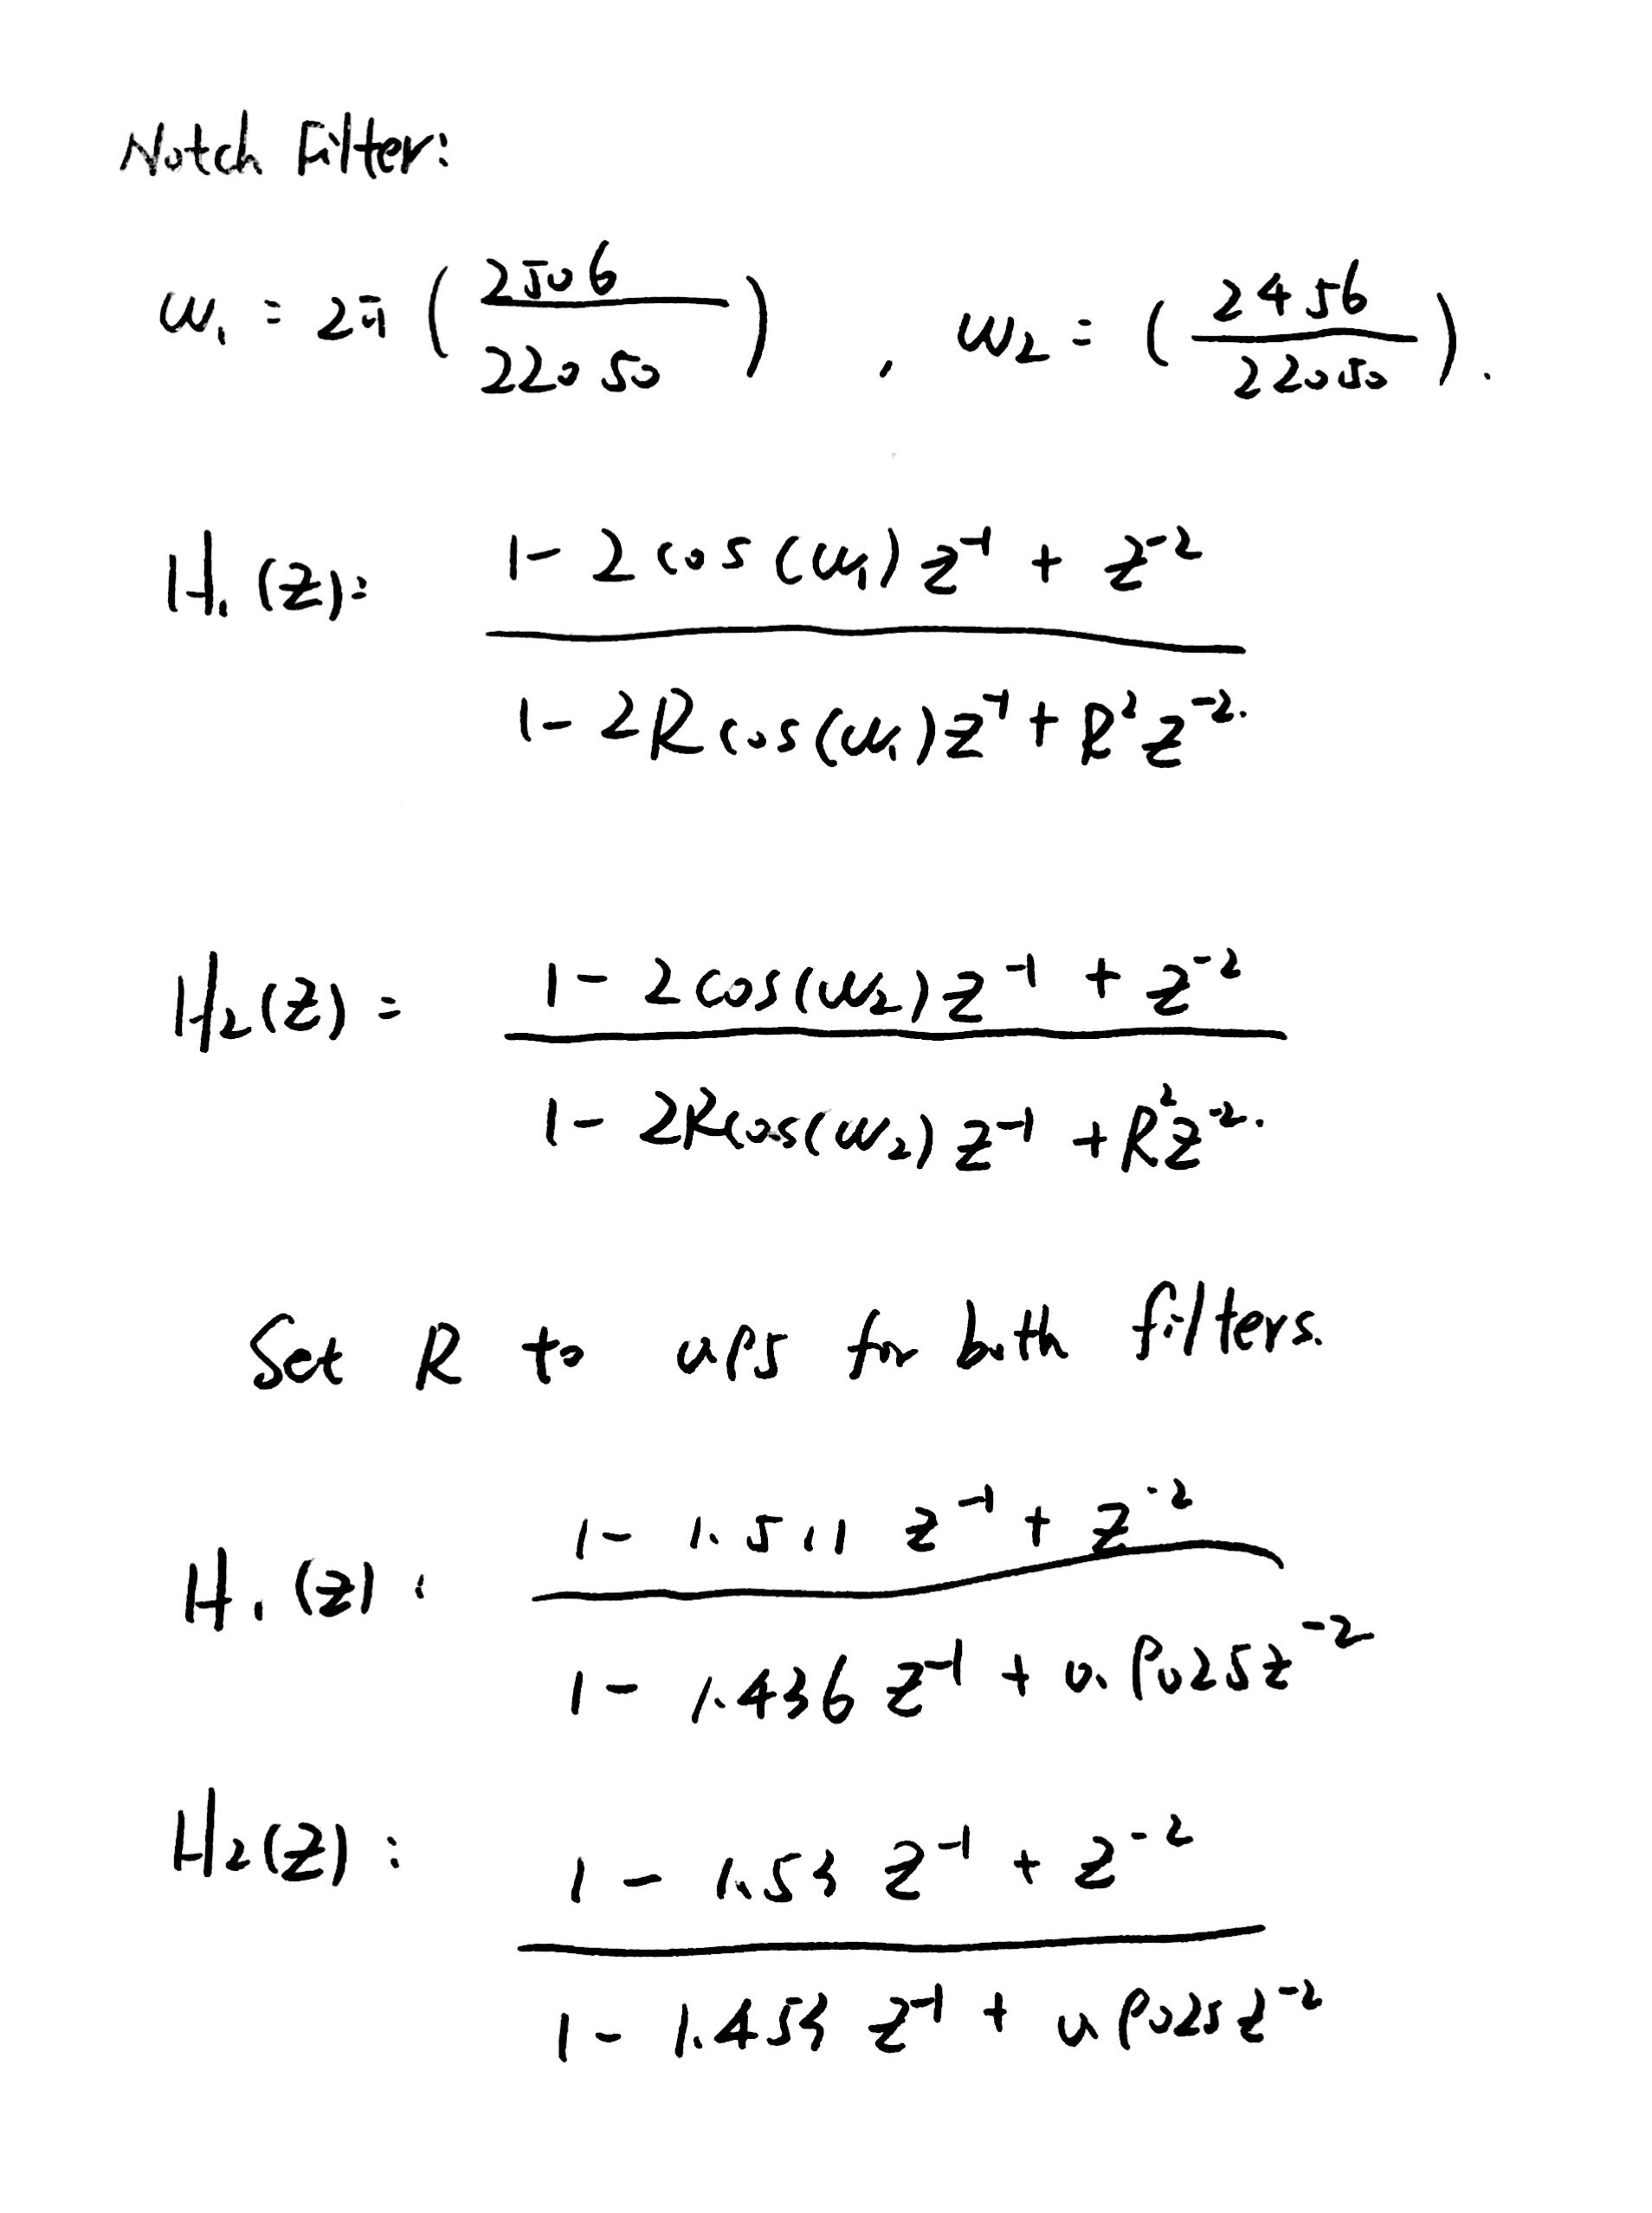 Notch Filter:
ω₁ = 2π ( 2506 / 22050 ) , ω₂ = ( 2456 / 22050 ).
H₁(z): (1 - 2 cos(ω₁) z⁻¹ + z⁻²) / (1 - 2R cos(ω₁) z⁻¹ + R² z⁻².)
H₂(z) = (1 - 2 cos(ω₂) z⁻¹ + z⁻²) / (1 - 2R cos(ω₂) z⁻¹ + R² z⁻².)
Set R to 0.95 for both filters.
H₁(z): (1 - 1.511 z⁻¹ + z⁻²) / (1 - 1.436 z⁻¹ + 0.9025 z⁻²)
H₂(z): (1 - 1.53 z⁻¹ + z⁻²) / (1 - 1.453 z⁻¹ + 0.9025 z⁻²)